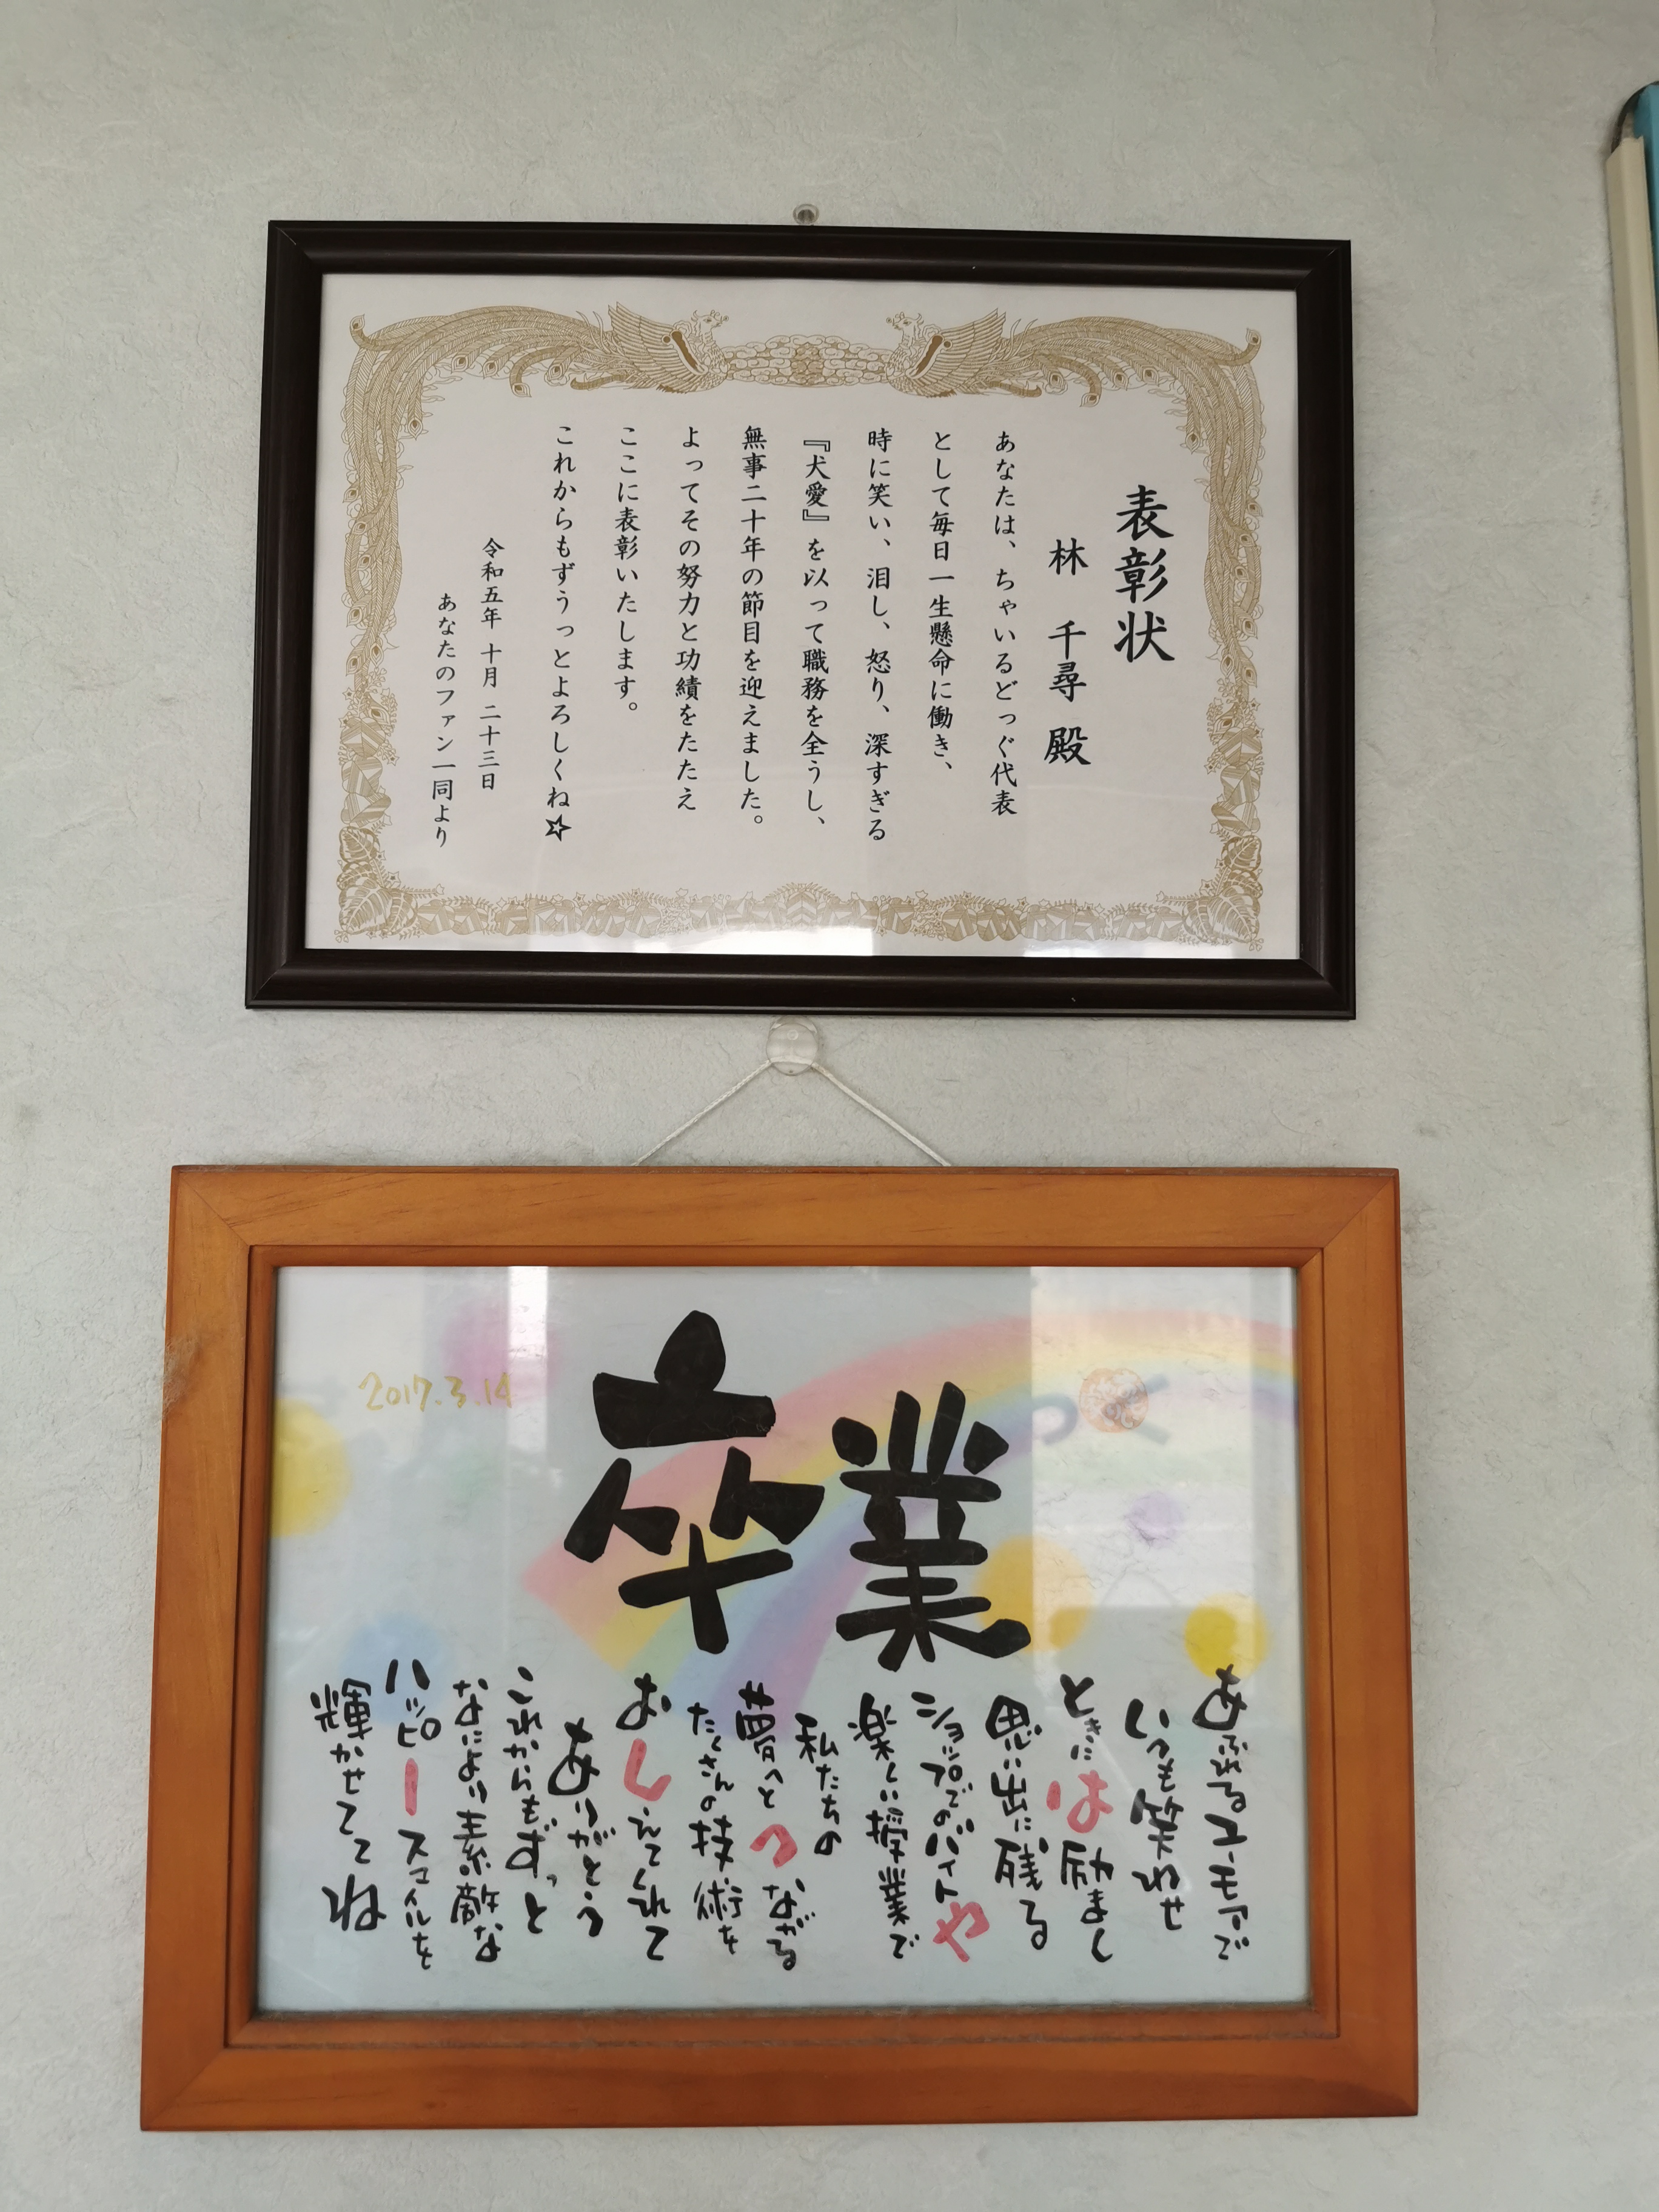 表彰状
林 千尋 殿
あなたは、ちゃいるどっぐ代表
として毎日一生懸命に働き、
時に笑い、泪し、怒り、深すぎる
『犬愛』を以って職務を全うし、
無事二十年の節目を迎えました。
よってその努力と功績をたたえ
ここに表彰いたします。
これからもずうっとよろしくね☆
令和五年 十月 二十三日
あなたのファン一同より
卒業
2017.3.14
あふれるユーモアで
いつも笑わせ
ときには励まし
思い出に残る
ショップでのバイトや
楽しい授業で
私たちの
夢へとつながる
たくさんの技術を
おしえてくれて
ありがとう
これからもずっと
なにより素敵な
ハッピースマイルを
輝かせててね